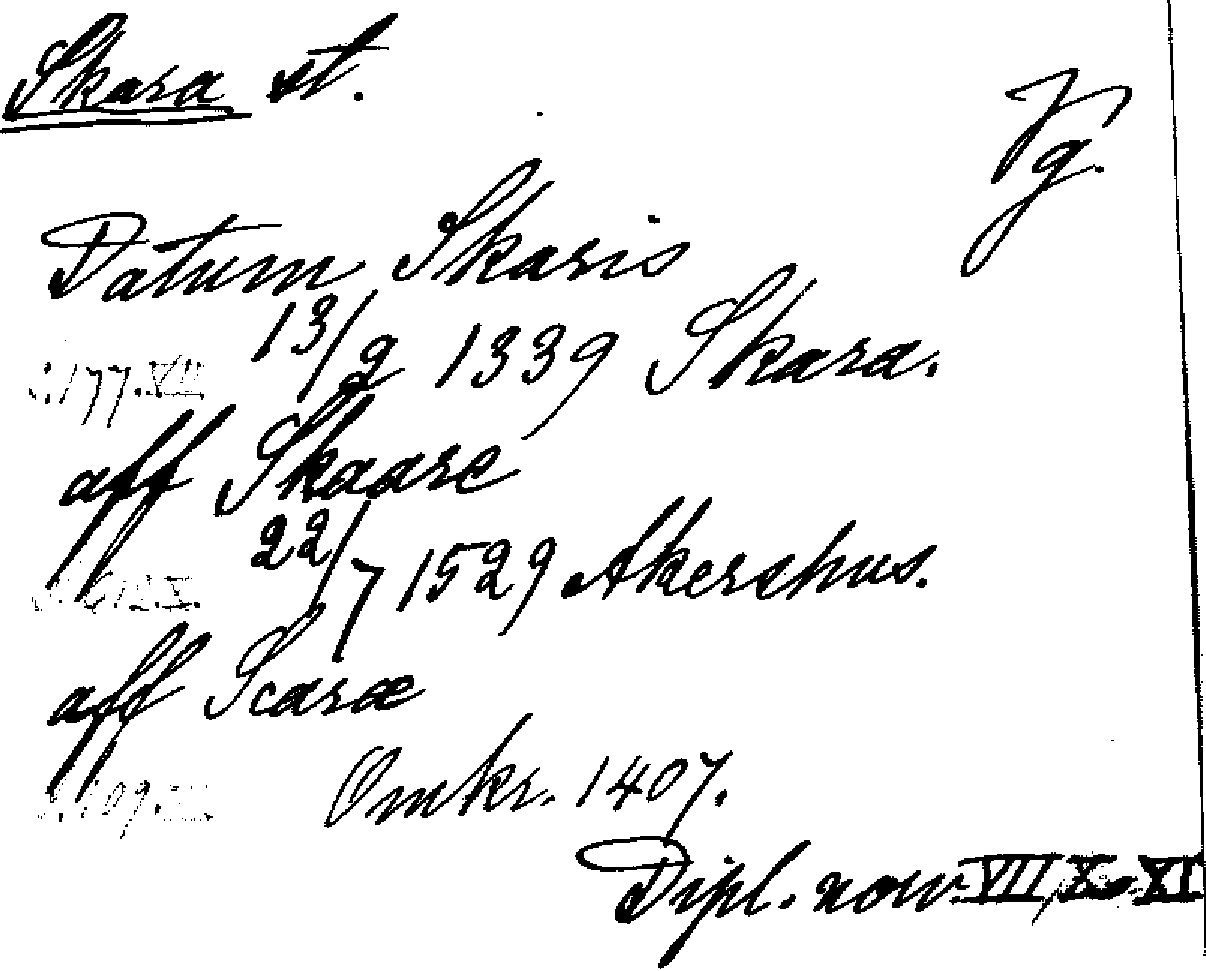 Skara st.
Vg.
Datum Skaris
13/9 1339 Skara.
s. 177. VII.
aff Skaare
22/7 1529 Akershus.
aff Scaræ
Omkr. 1407.
Dipl. norv. VII, X o XI